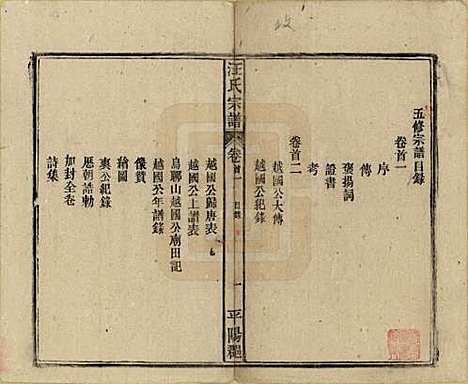 五修宗譜目錄
卷首一
序
傳
褒揚詞
證書
考
卷首二
越國公大傳
越國公紀錄
汪氏宗譜
卷首一
目錄
一
平陽郡
越國公歸唐表
越國公上譜表
烏聊山越國公廟田記
越國公年譜錄
像贊
繪圖
奭公紀錄
歷朝誥勅
加封全卷
詩集